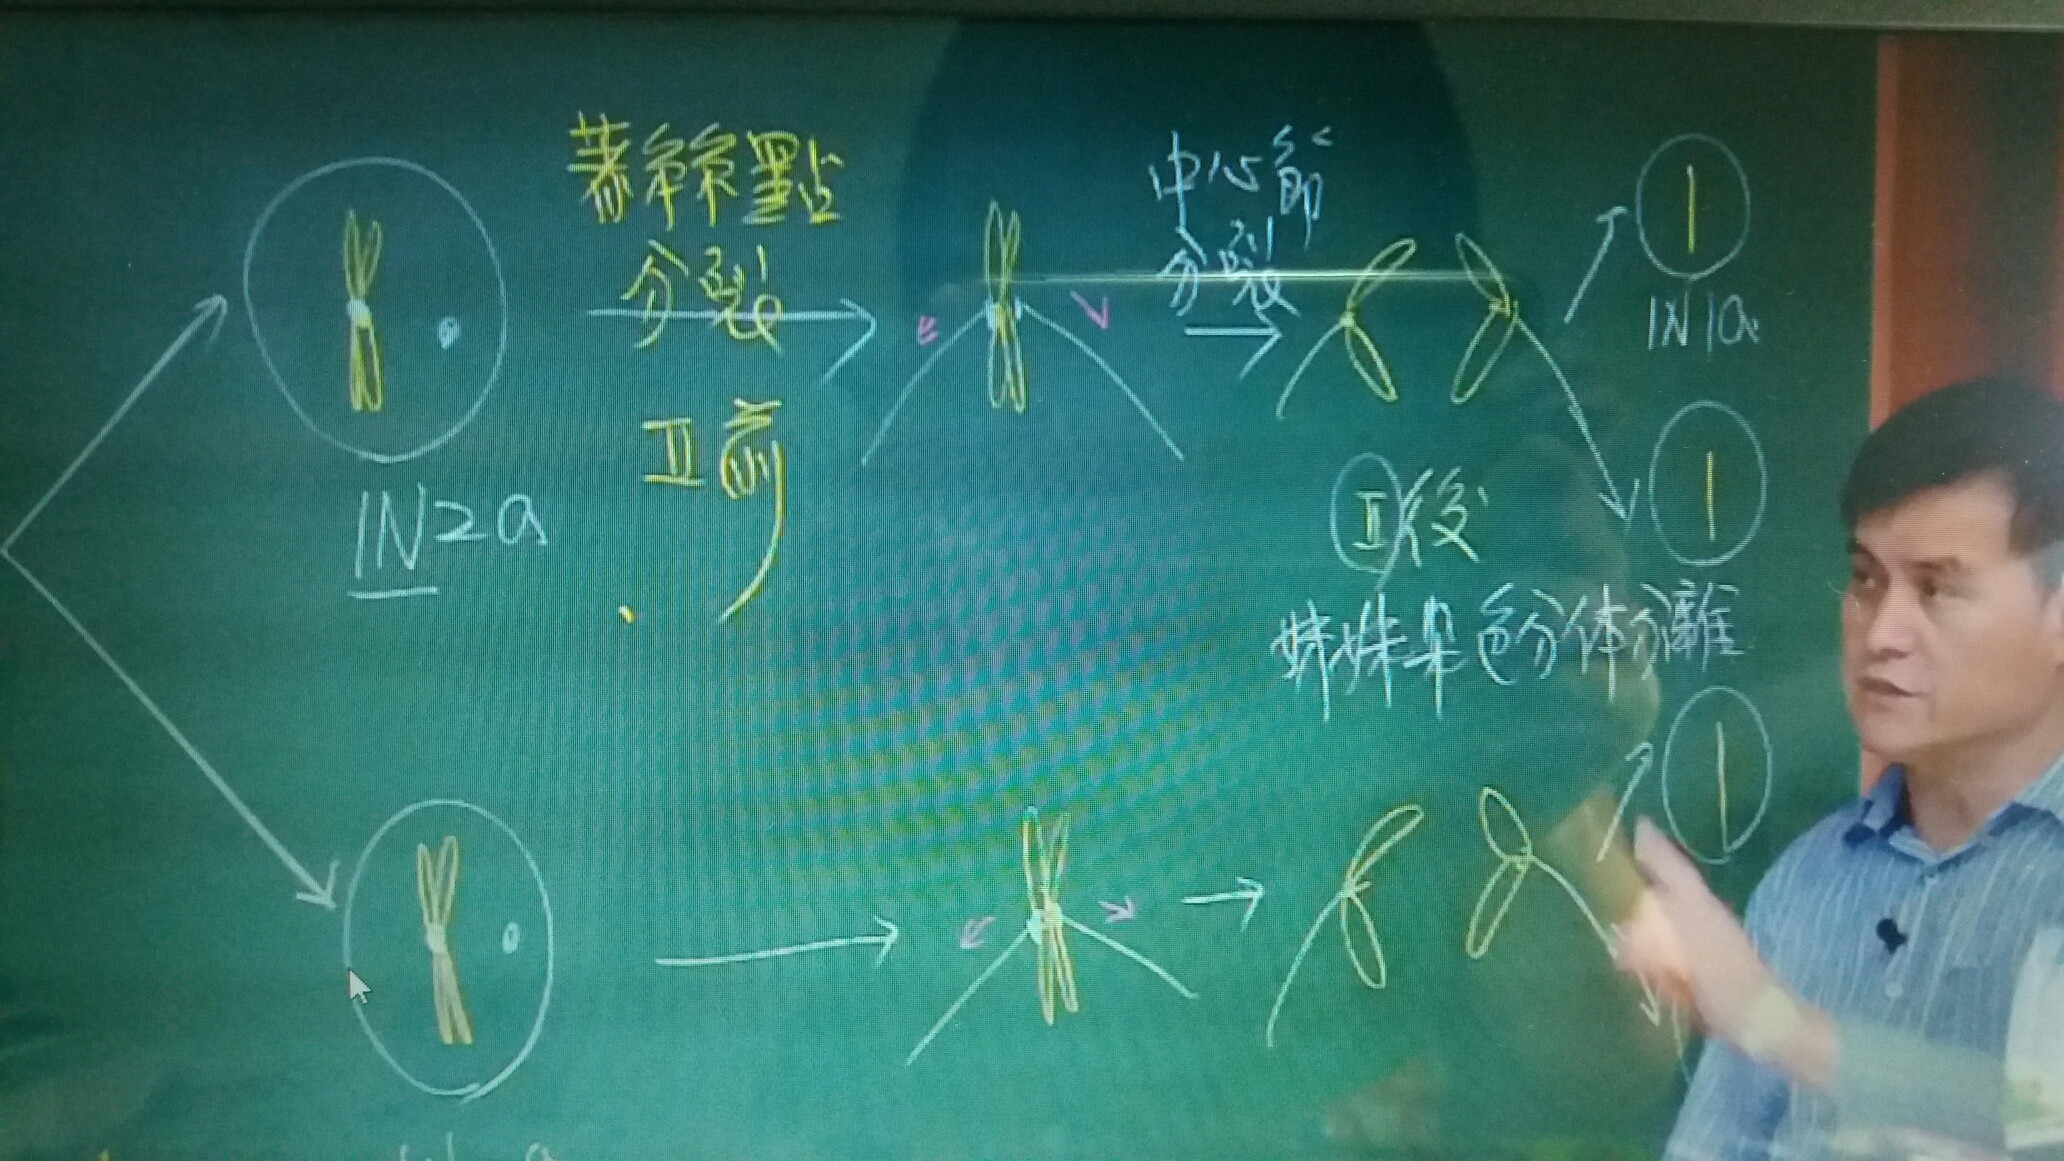 著絲點
分裂
II前
中心節
分裂
II後
姊妹染色分体分離
1N2a
1N1a